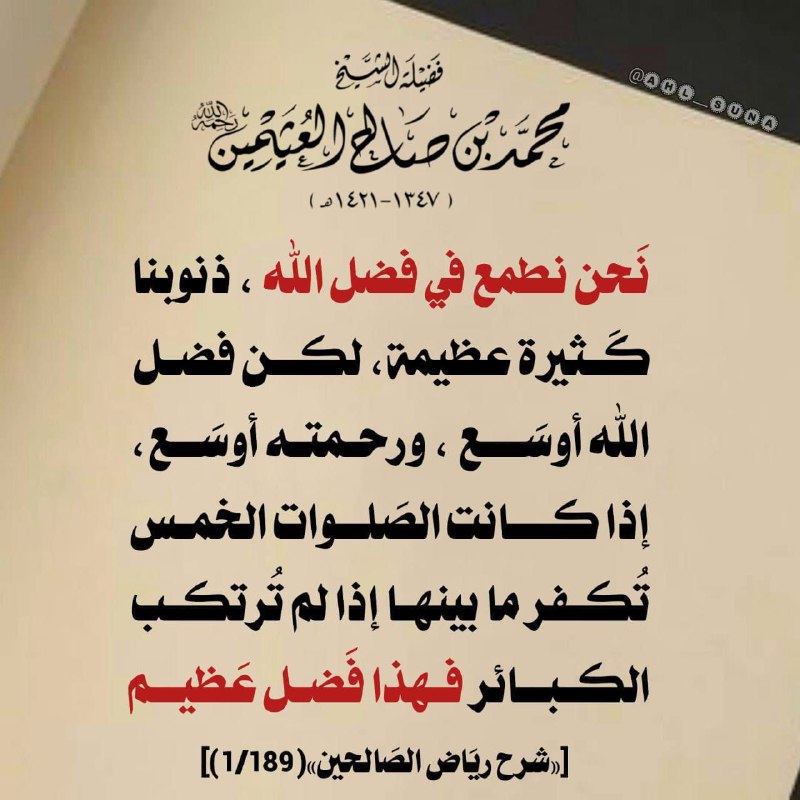 @AHL_SUNA
فَضِيْلَة الشَّيْخ
محمَّد بْن صَالح العُثَيْمِين رَحِمَهُ اللَّه
(١٣٤٧-١٤٢١هـ)
نَحن نطمع في فضل الله ، ذنوبنا
كَـثيرة عظيمة، لكــن فضـل
الله أوسَـــع ، ورحـمتـه أوسَــع،
إذا كــــانت الصَلــوات الخمـس
تُكـفـر ما بينهـا إذا لم تُرتكـب
الكـبـــائر فـهذا فَضـل عَظيـم
[«شرح ريَاض الصَالحين»(1/189)]